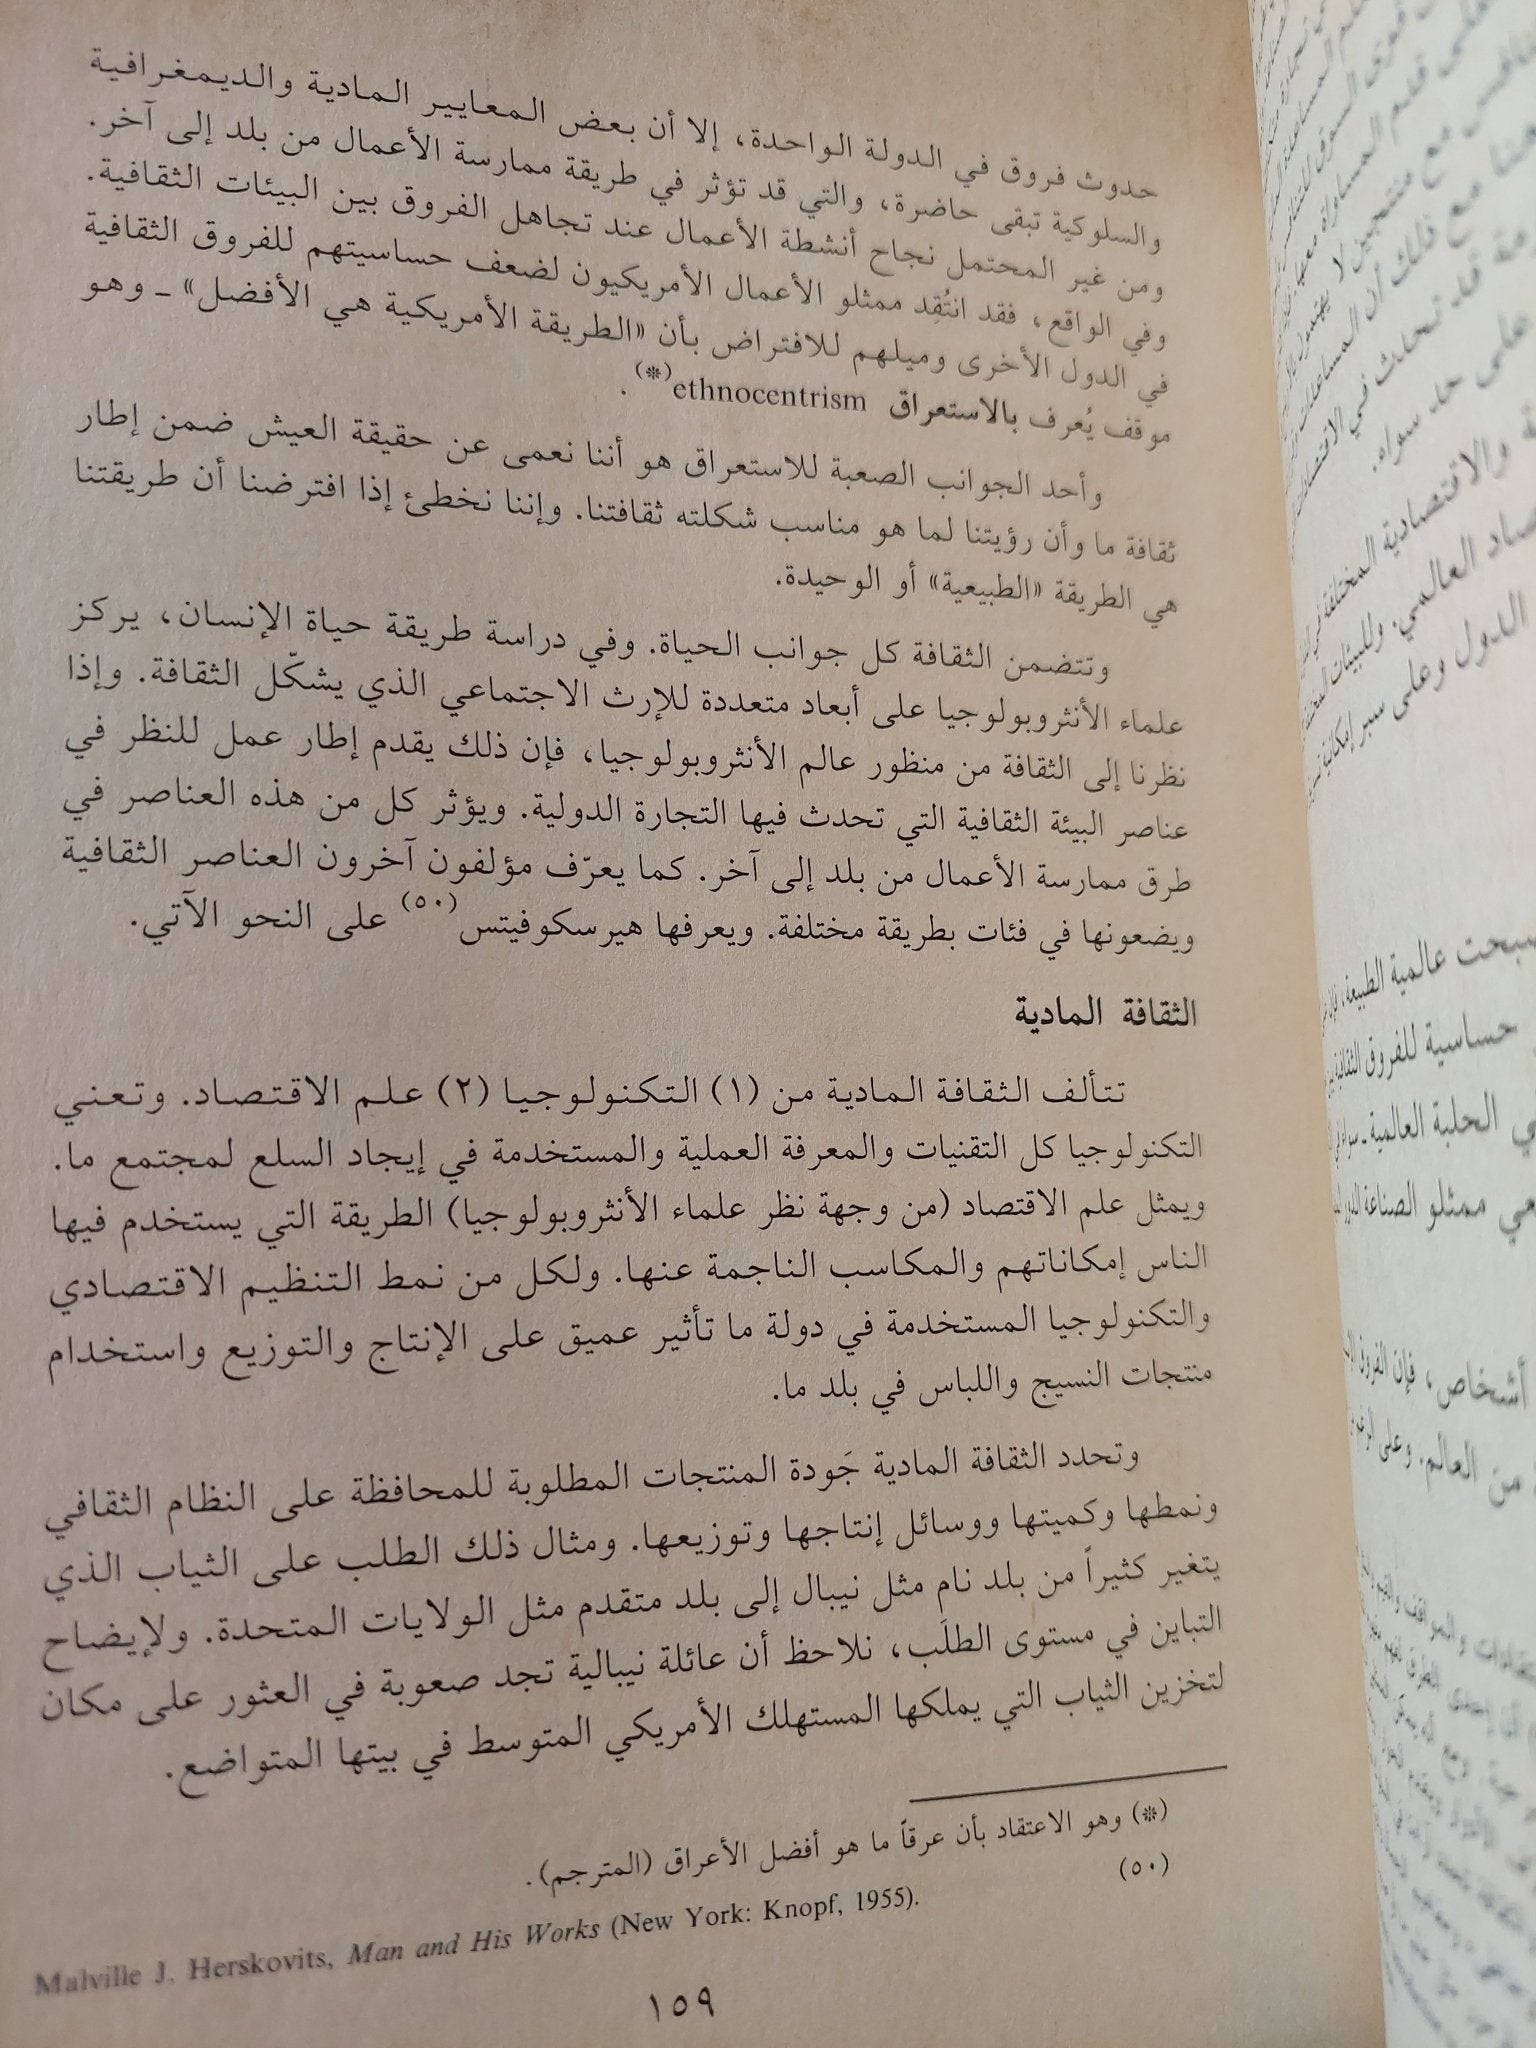 حدوث فروق في الدولة الواحدة، إلا أن بعض المعايير المادية والديمغرافية
والسلوكية تبقى حاضرة، والتي قد تؤثر في طريقة ممارسة الأعمال من بلد إلى آخر.
ومن غير المحتمل نجاح أنشطة الأعمال عند تجاهل الفروق بين البيئات الثقافية.
وفي الواقع، فقد انتُقِد ممثلو الأعمال الأمريكيون لضعف حساسيتهم للفروق الثقافية
في الدول الأخرى وميلهم للافتراض بأن «الطريقة الأمريكية هي الأفضل» ـ وهو
موقف يُعرف بالاستعراق ethnocentrism(*).
وأحد الجوانب الصعبة للاستعراق هو أننا نعمى عن حقيقة العيش ضمن إطار
ثقافة ما وأن رؤيتنا لما هو مناسب شكلته ثقافتنا. وإننا نخطئ إذا افترضنا أن طريقتنا
هي الطريقة «الطبيعية» أو الوحيدة.
وتتضمن الثقافة كل جوانب الحياة. وفي دراسة طريقة حياة الإنسان، يركز
علماء الأنثروبولوجيا على أبعاد متعددة للإرث الاجتماعي الذي يشكّل الثقافة. وإذا
نظرنا إلى الثقافة من منظور عالم الأنثروبولوجيا، فإن ذلك يقدم إطار عمل للنظر في
عناصر البيئة الثقافية التي تحدث فيها التجارة الدولية. ويؤثر كل من هذه العناصر في
طرق ممارسة الأعمال من بلد إلى آخر. كما يعرّف مؤلفون آخرون العناصر الثقافية
ويضعونها في فئات بطريقة مختلفة. ويعرفها هيرسكوفيتس(٥٠) على النحو الآتي.
الثقافة المادية
تتألف الثقافة المادية من (١) التكنولوجيا (٢) علم الاقتصاد. وتعني
التكنولوجيا كل التقنيات والمعرفة العملية والمستخدمة في إيجاد السلع لمجتمع ما.
ويمثل علم الاقتصاد (من وجهة نظر علماء الأنثروبولوجيا) الطريقة التي يستخدم فيها
الناس إمكاناتهم والمكاسب الناجمة عنها. ولكل من نمط التنظيم الاقتصادي
والتكنولوجيا المستخدمة في دولة ما تأثير عميق على الإنتاج والتوزيع واستخدام
منتجات النسيج واللباس في بلد ما.
وتحدد الثقافة المادية جَودة المنتجات المطلوبة للمحافظة على النظام الثقافي
ونمطها وكميتها ووسائل إنتاجها وتوزيعها. ومثال ذلك الطلب على الثياب الذي
يتغير كثيراً من بلد نام مثل نيبال إلى بلد متقدم مثل الولايات المتحدة. ولإيضاح
التباين في مستوى الطلَب، نلاحظ أن عائلة نيبالية تجد صعوبة في العثور على مكان
لتخزين الثياب التي يملكها المستهلك الأمريكي المتوسط في بيتها المتواضع.
(*) وهو الاعتقاد بأن عرقاً ما هو أفضل الأعراق (المترجم).
(٥٠)
Malville J. Herskovits, Man and His Works (New York: Knopf, 1955).
١٥٩